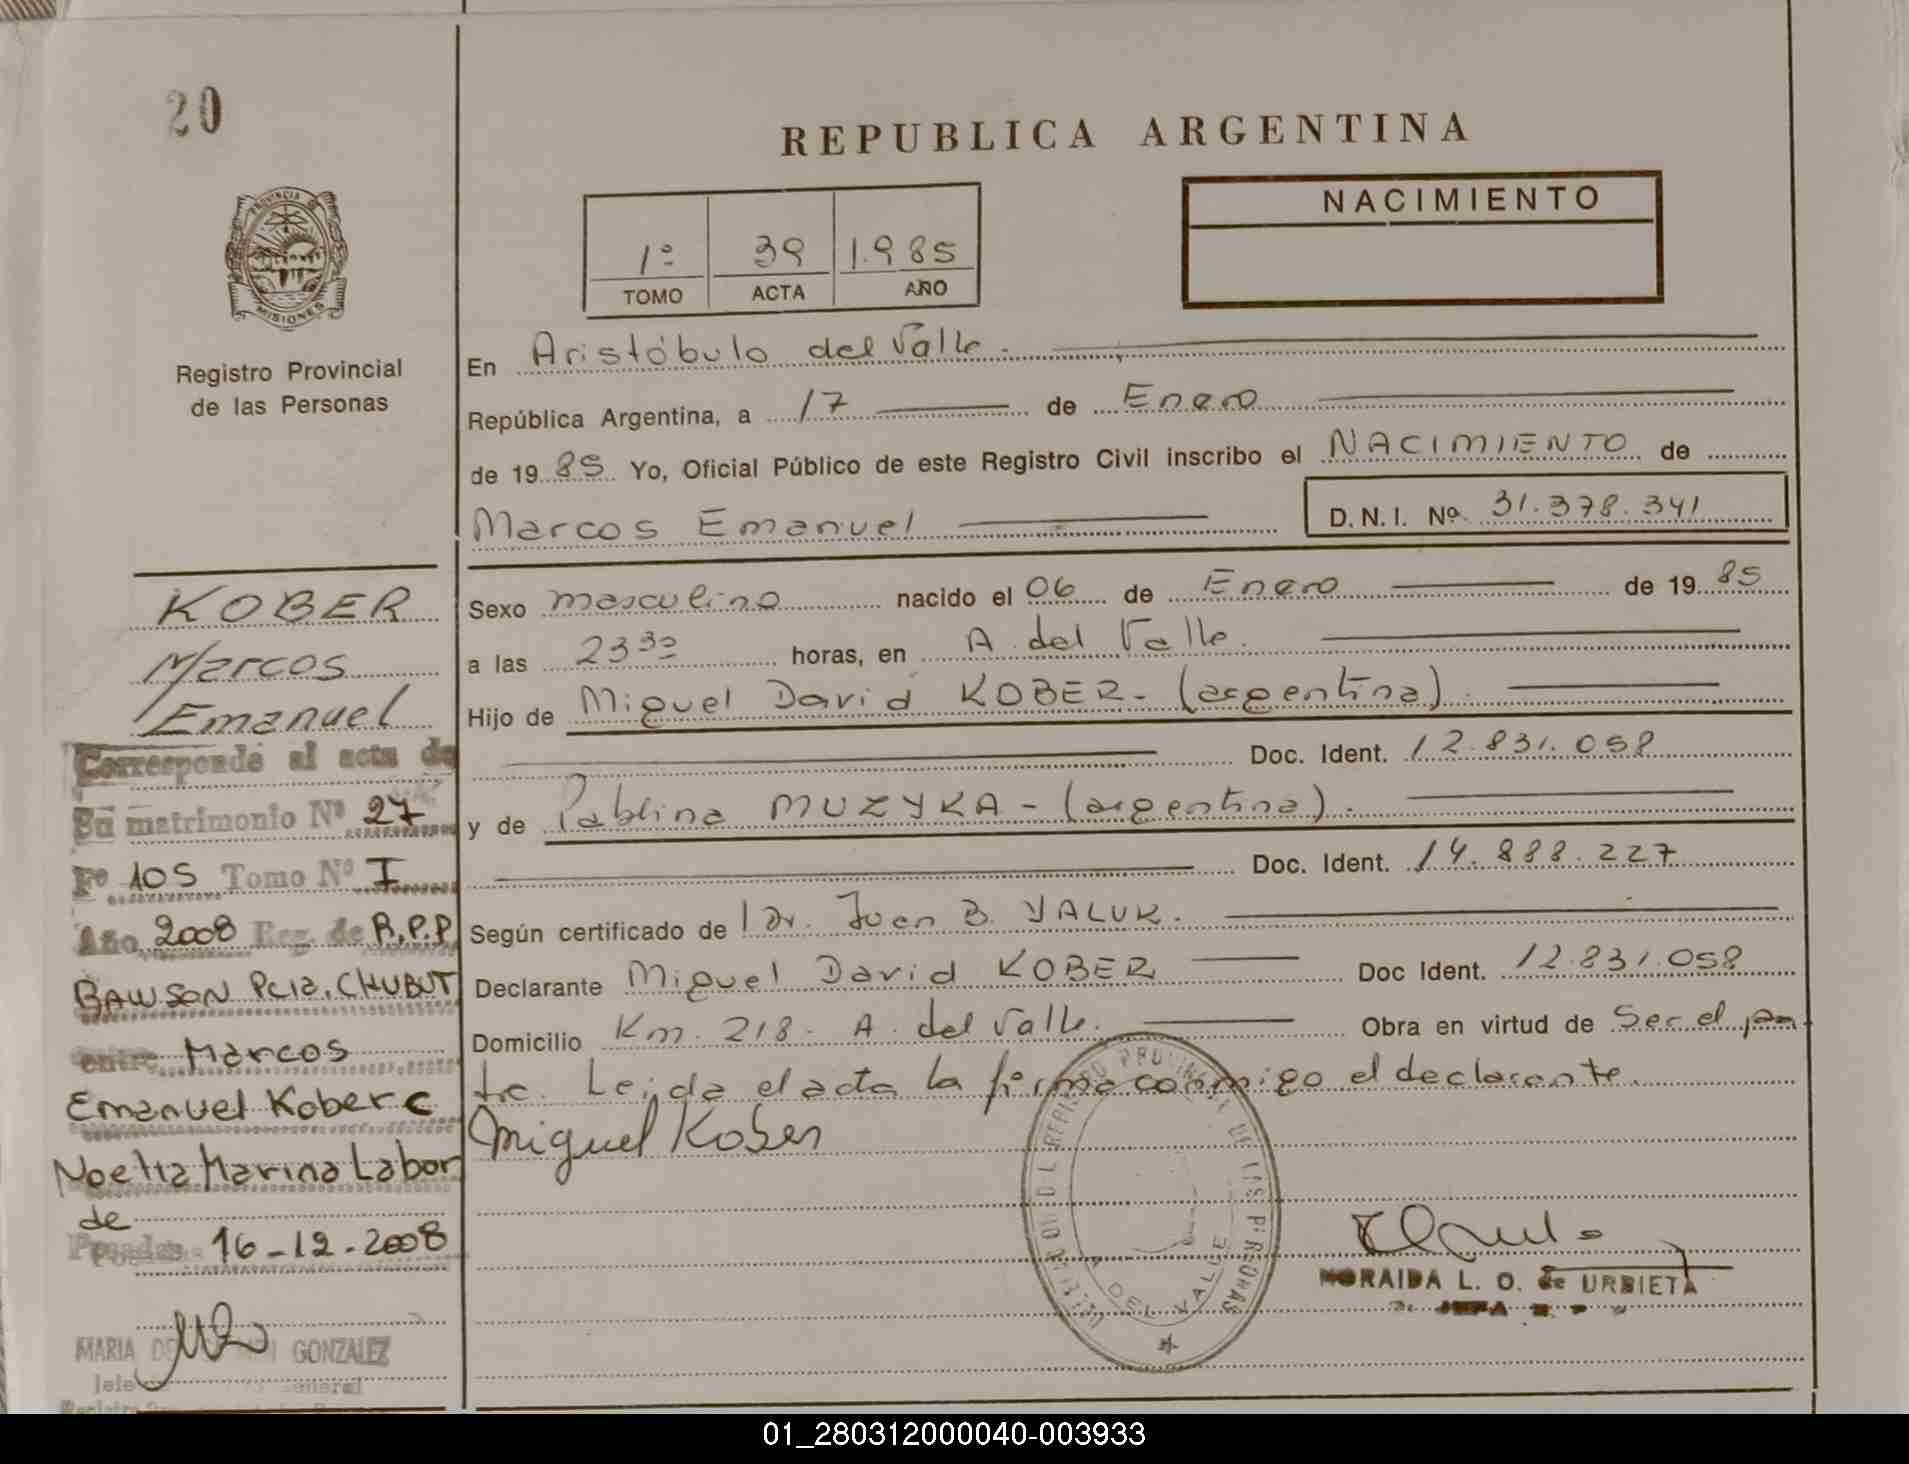 20
REPUBLICA ARGENTINA
PROVINCIA DE
MISIONES
Registro Provincial
de las Personas
1º 39 1.985
TOMO ACTA AÑO
NACIMIENTO
En Aristóbulo del Valle.
República Argentina, a 17 de Enero
de 19 85 Yo, Oficial Público de este Registro Civil inscribo el NACIMIENTO de
Marcos Emanuel D.N.I. Nº 31.378.341
Sexo masculino nacido el 06 de Enero de 19 85
a las 23 30 horas, en A. del Valle.
Hijo de Miguel David KOBER - (argentina).
Doc. Ident. 12.831.058
y de Pablina MUZYKA - (argentina).
Doc. Ident. 14.888.227
Según certificado de Dr. Juan B. YALUK.
Declarante Miguel David KOBER Doc Ident. 12.831.058
Domicilio Km. 218 - A. del Valle. Obra en virtud de Ser el pa
dre. Leida el acta la firma conmigo el declarante.
Miguel Kober
A DEL VALLE
NORAIDA L. O. de URBIETA
KOBER
Marcos
Emanuel
Corresponde al acta de
Su matrimonio Nº 27
Fº 105 Tomo Nº I
Año 2008 Reg. de R.P.P
RAWSON Pcia. CHUBUT
entre Marcos
Emanuel Kober c
Noelia Marina Labor
de
Posadas 16-12-2008
MARIA GONZALEZ
01_280312000040-003933